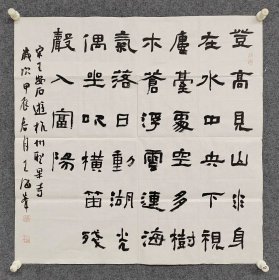 登高見山水身
在水中央下視
廔臺處空多樹
木蒼浮雲連海
氣落日動湖光
偶坐吹橫笛殘
聲入富陽
宋王安石遊杭州聖果寺
歲次甲辰春月王海